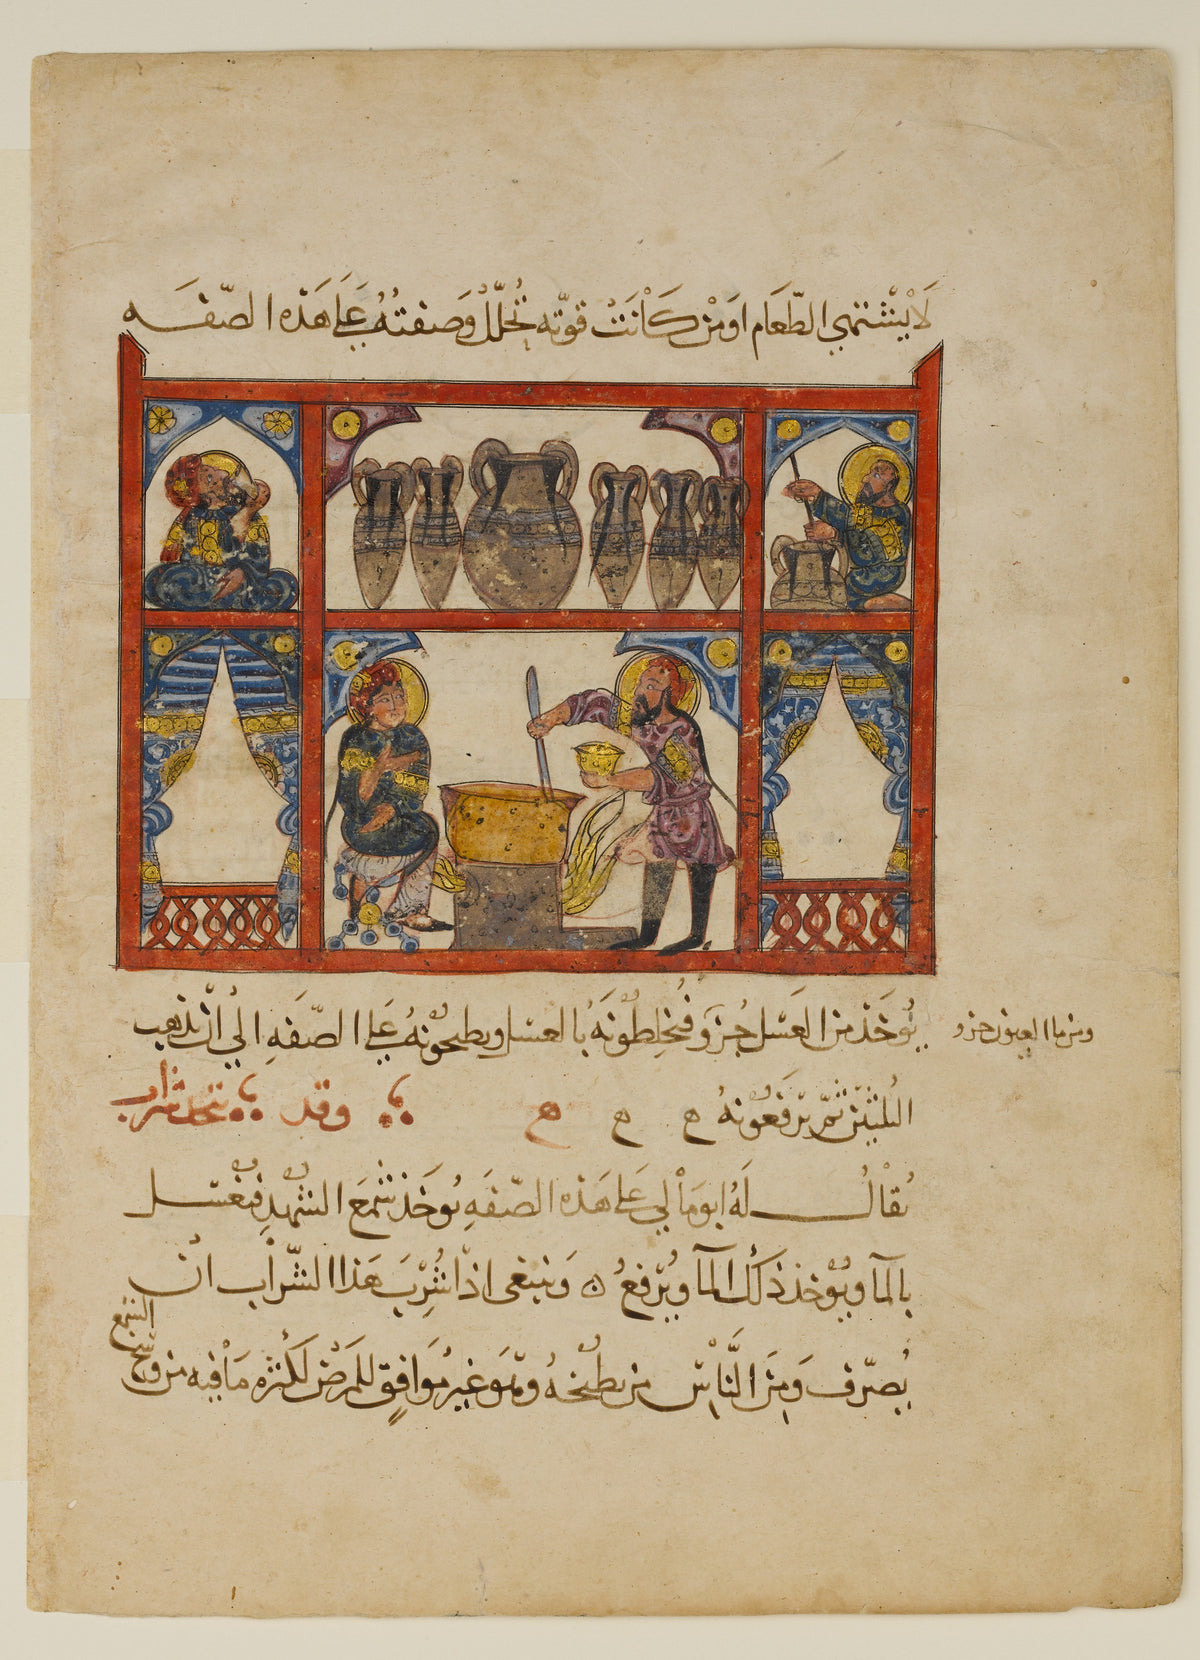 لَا يَشْتَهِي الطَّعَام اوَمَنْ كَانَتْ قوّته تُحلّلُ وَصَفتُهُ عَلَى هَذه الصّفَه
يُوخَذ من العَسَل جُزو فيُخلِطُونَهُ بالعسَل ويطبخُونَهُ عَلى الصّفَهِ الي انْ يذهب
ومن ما العيون جزو
الثلثين ثمّ يَرفَعُونهُ ه ه ه وقد يتخذ شراب
يُقالُ لَهُ ابومَالي عَلى هَذه الصّفَهِ يُوخَذ شمَعَ الشّهدِ فيغسَل
بالمآ ويُوخذ ذلك المآ ويُرفعُ ه وَينبغي اذا شُرِبَ هَذا الشّراب انْ
يُصرّف وَمِنَ النَّاسِ من يطبُخهُ وهو غيرُ موَافِق للمرَضى لكثره مَا فيه من وسخ
الشمع